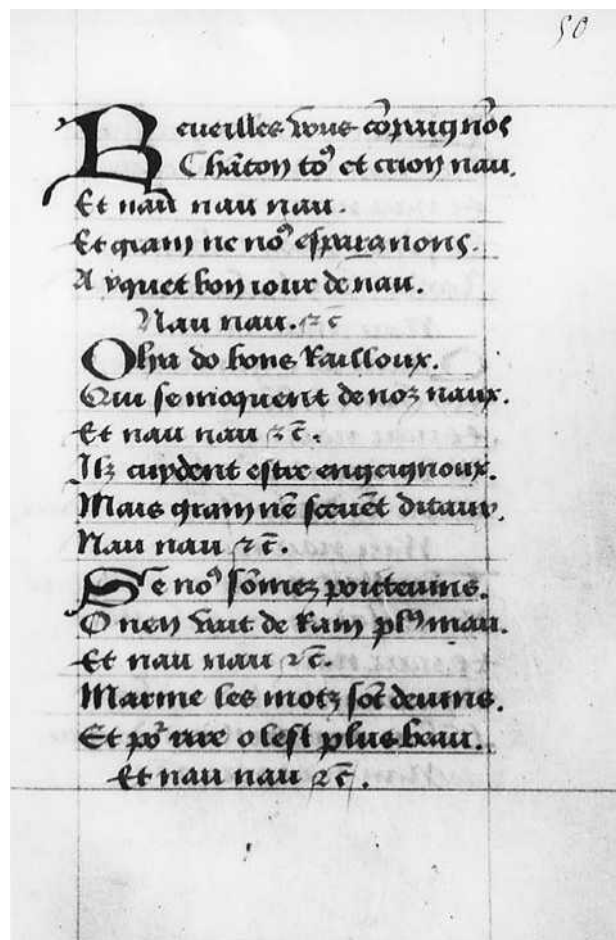 50
Reueilles vous cõpaignõs
Chãton toꝰ et crion nau.
Et nau nau nau.
Et gram ne noꝰ esparanons.
A yquet bon iour de nau.
Nau nau. ⁊ c̄
Ohu do bons Railloux.
Qui se mocquent de noz naux.
Et nau nau ⁊ c̄.
Ilz cuydent estre engeignoux.
Mais gram nẽ scevẽt ditaux.
Nau nau ⁊ c̄.
Se noꝰ sõmez poicteuins.
O nen vault de Ram plꝰ mau.
Et nau nau ⁊ c̄.
Marme les motz sõt deuins.
Et poʳ rire o lest plus beau.
Et nau nau ⁊ c̄.